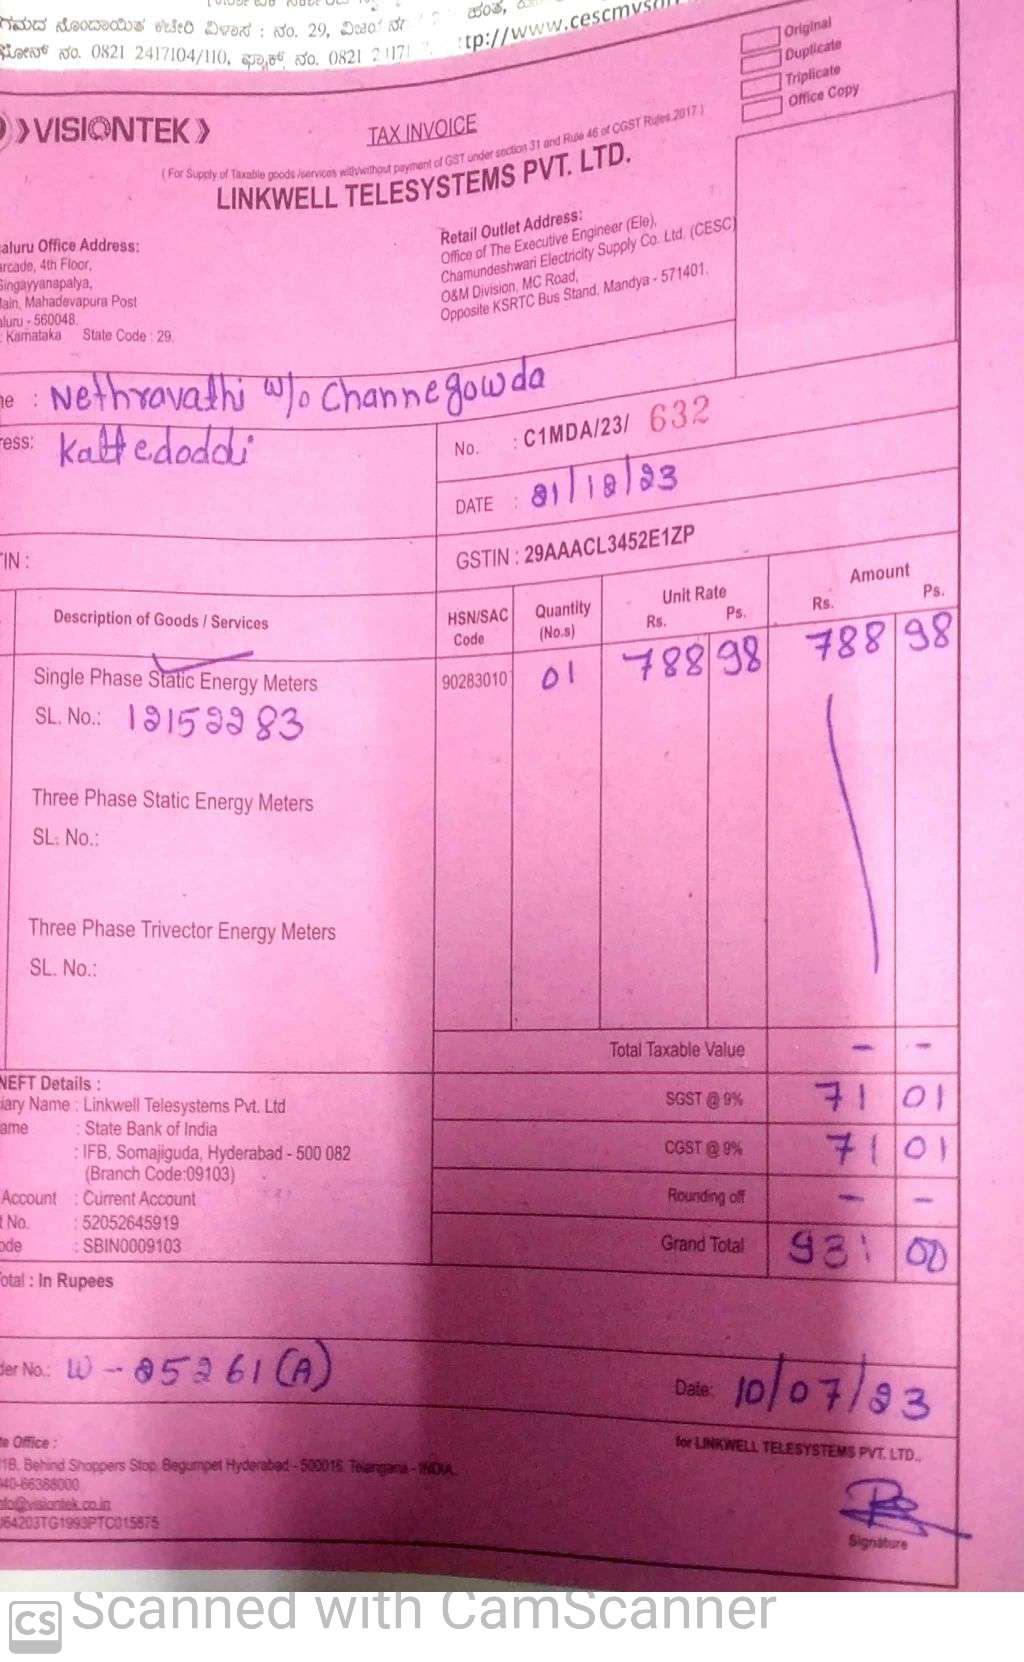 ನಿಗಮದ ನೊಂದಾಯಿತ ಕಚೇರಿ ವಿಳಾಸ : ನಂ. 29,
ನಂ. 0821 2417104/110, ಫ್ಯಾಕ್ಸ್ ನಂ. 0821
tp://www.cescmys
Original
Duplicate
Triplicate
Office Copy
VISIONTEK
TAX INVOICE
( For Supply of Taxable goods /services with/without payment of GST under section 31 and Rule 46 of CGST Rules.2017 )
LINKWELL TELESYSTEMS PVT. LTD.
aluru Office Address:
arcade, 4th Floor,
Singayyanapalya,
Main, Mahadevapura Post
aluru - 560048.
: Karnataka State Code : 29.
Retail Outlet Address:
Office of The Executive Engineer (Ele),
Chamundeshwari Electricity Supply Co. Ltd. (CESC)
O&M Division, MC Road,
Opposite KSRTC Bus Stand, Mandya - 571401.
me : Nethravathi w/o Channegowda
ress: Kattedoddi
No. : C1MDA/23/ 632
DATE : 21/12/23
TIN :
GSTIN : 29AAACL3452E1ZP
Description of Goods / Services
HSN/SAC Code
Quantity (No.s)
Unit Rate
Rs. Ps.
Amount
Rs. Ps.
Single Phase Static Energy Meters 90283010 01 788 98 788 98
SL. No.: 12152283
Three Phase Static Energy Meters
SL. No.:
Three Phase Trivector Energy Meters
SL. No.:
Total Taxable Value - -
NEFT Details :
iary Name : Linkwell Telesystems Pvt. Ltd
SGST @ 9% 71 01
ame : State Bank of India
: IFB, Somajiguda, Hyderabad - 500 082
(Branch Code:09103)
CGST @ 9% 71 01
Account : Current Account
Rounding off - -
t No. : 52052645919
ode : SBIN0009103
Grand Total 931 00
otal : In Rupees
der No.: W - 25261(A)
Date: 10/07/23
te Office :
11B, Behind Shoppers Stop, Begumpet Hyderabad - 500016. Telangana - INDIA.
040-66388000
nfo@visiontek.co.in
U64203TG1993PTC015875
for LINKWELL TELESYSTEMS PVT. LTD.,
Signature
CS Scanned with CamScanner